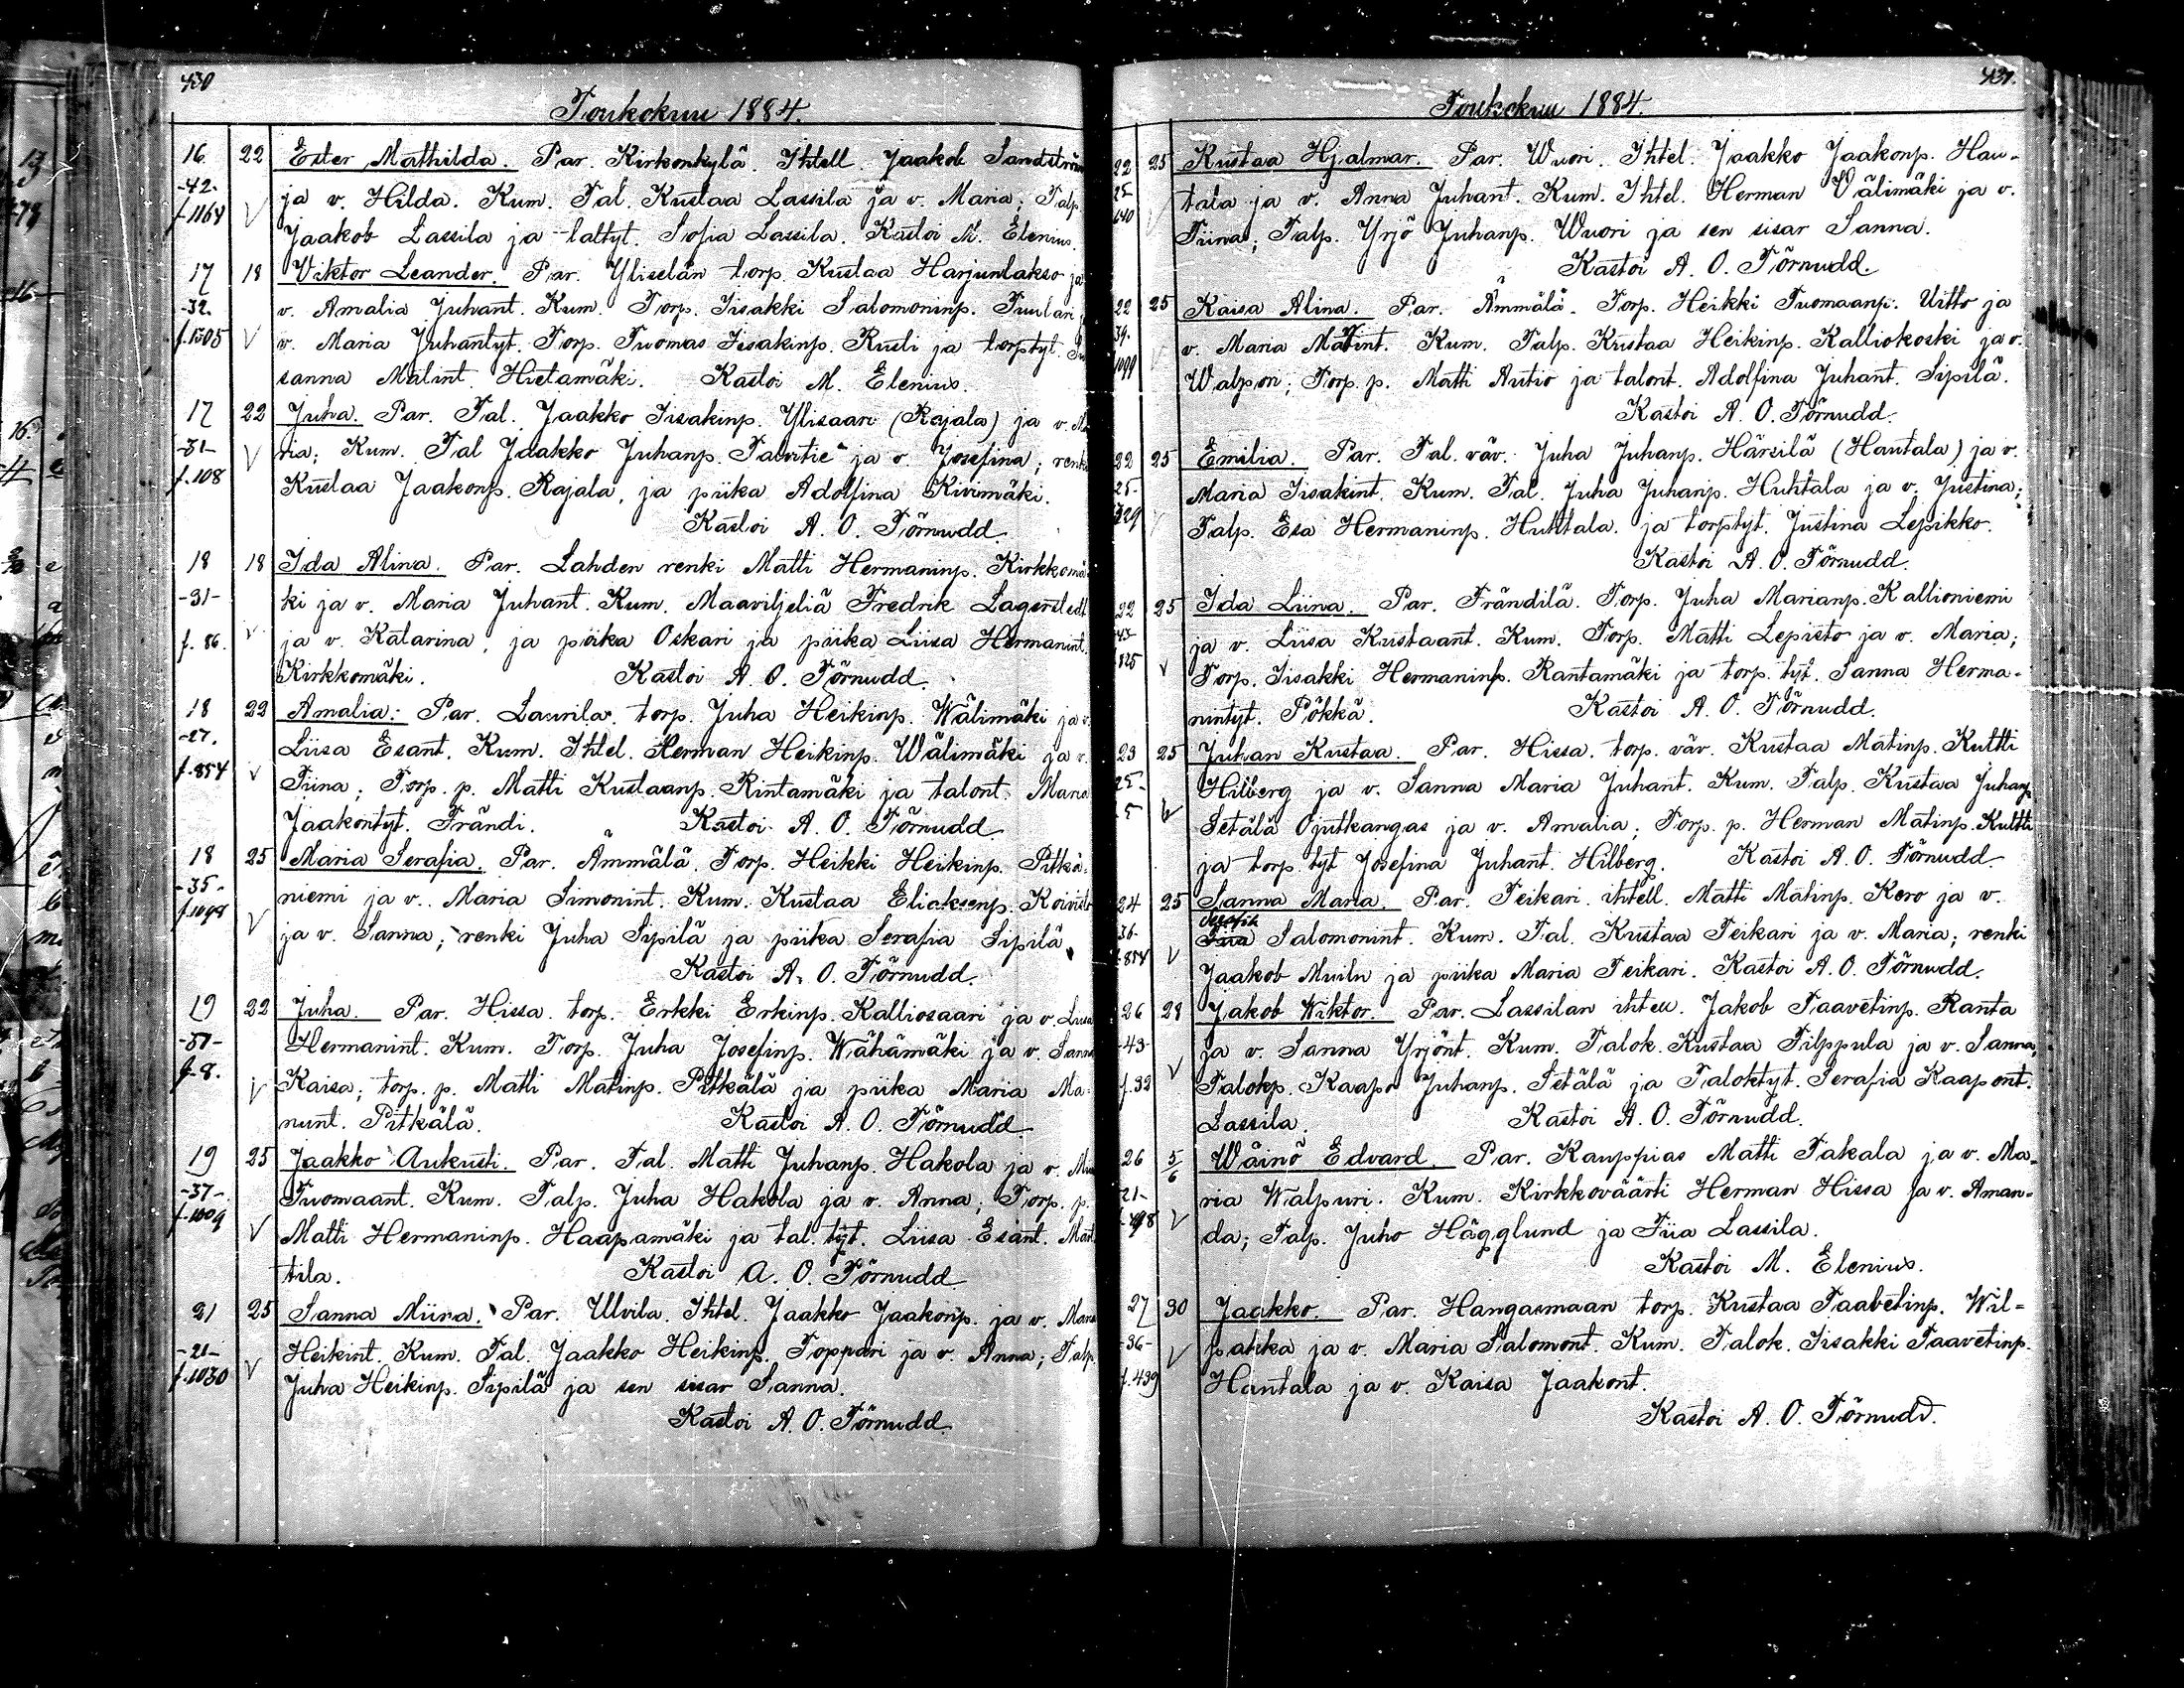 430
Toukokuu 1884.
16. 22 Ester Mathilda. Par. Kirkonkylä. Ihtell. Jaakob Sandström
-42- ja v. Hilda. Kum. Tal. Kustaa Lassila ja v. Maria; Talp.
f. 1164 V Jaakob Lassila ja taltyt. Sofia Lassila. Kastoi M. Elenius.
17 18 Viktor Leander. Par. Yliselän torp. Kustaa Harjunlakso ja
-32. v. Amalia Juhant. Kum. Torp. Iisakki Salomoninp. Tuulari
f. 1505 V v. Maria Juhantyt. Torp. Tuomas Iisakinp. Rusli ja torptyt. Su
sanna Matint. Hietamäki. Kastoi M. Elenius.
17 22 Juha. Par. Tal. Jaakko Iisakinp. Ylisaari (Rajala) ja v. Ma
-31- V ria; Kum. Tal Jaakko Juhanp. ja v. Josefina; renki
f. 108 Kustaa Jaakonp. Rajala, ja piika Adolfina Kivimäki.
Kastoi A. O. Törnudd.
18 18 Ida Alina. Par. Lahden renki Matti Hermaninp. Kirkkomä
-31- ki ja v. Maria Juhant. Kum. Maaviljeliä Fredrik Lagerstedt
f. 86. V ja v. Katarina, ja piika Oskari ja piika Liisa Hermanint.
Kirkkomäki. Kastoi A. O. Törnudd.
18 22 Amalia. Par. Laurila. torp. Juha Heikinp. Wälimäki ja v.
-27. Liisa Esant. Kum. Ihtel. Herman Heikinp. Wälimäki ja v.
f. 854 V Tiina; Torp. p. Matti Kustaanp. Rintamäki ja talont. Maria
Jaakontyt. Frändi. Kastoi A. O. Törnudd
18 25 Maria Serafia. Par. Ämmälä. Torp. Heikki Heikinp. Pitkä-
-35- niemi ja v. Maria Simonint. Kum. Kustaa Eliaksenp. Koivisto
f. 1098 V ja v. Sanna; renki Juha Sipilä ja piika Serafia Sipilä.
Kastoi A. O. Törnudd.
19 22 Juha. Par. Hissa. torp. Erkki Erkinp. Kalliosaari ja v. Liisa
Hermanint. Kum. Torp. Juha Josefinp. Wähämäki ja v. Sanna
f. 8. V Kaisa; torp. p. Matti Matinp. Pitkälä ja piika Maria Ma-
nunt. Pitkälä. Kastoi A. O. Törnudd.
19 25 Jaakko Aukusti. Par. Tal. Matti Juhanp. Hakola ja v.
-37- Tuomaant. Kum. Talp. Juha Hakola ja v. Anna; Torp. p.
f. 1009 V Matti Hermaninp. Haapamäki ja tal. tyt. Liisa Esant. Mat
tila. Kastoi A. O. Törnudd
21 25 Sanna Miina. Par. Ulvila. Ihtel. Jaakko Jaakonp. ja v. Maria
-21- Heikint. Kum. Tal. Jaakko Heikinp. Toppari ja v. Anna; Talp.
f. 1030 V Juha Heikinp. Sipilä ja sen sisar Sanna.
Kastoi A. O. Törnudd.
431.
Toukokuu 1884.
22 25 Kustaa Hjalmar. Par. Wuori. Ihtel. Jaakko Jaakonp. Hau-
25- tala ja v. Anna Juhant. Kum. Ihtel. Herman Välimäki ja v.
640 V Tiina; Talp. Yrjö Juhanp. Wuori ja sen sisar Sanna.
Kastoi A. O. Törnudd.
22 25 Kaisa Alina. Par. Ämmälä. Torp. Heikki Tuomaanp. Uitto ja
39. v. Maria Matint. Kum. Talp. Kustaa Heikinp. Kalliokoski ja v.
1099 V Walpori; Torp. p. Matti Autio ja talont. Adolfina Juhant. Sipilä.
Kastoi A. O. Törnudd.
22 25 Emilia. Par. Tal. väv. Juha Juhanp. Härsilä (Hautala) ja v.
25- Maria Iisakint. Kum. Tal. Juha Juhanp. Huhtala ja v. Justina;
Talp. Esa Hermaninp. Huhtala. ja torptyt. Justina Lepikko.
Kastoi A. O. Törnudd.
22 25 Ida Liina. Par. Frändilä. Torp. Juha Marianp. Kallioniemi
ja v. Liisa Kustaant. Kum. Torp. Matti Lepistö ja v. Maria;
825 V Torp. Iisakki Hermaninp. Rantamäki ja torp. tyt. Sanna Herma-
nintyt. Pökkä. Kastoi A. O. Törnudd.
23 25 Juhan Kustaa. Par. Hissa. torp. väv. Kustaa Matinp. Kultti
25- Hilberg ja v. Sanna Maria Juhant. Kum. Talp. Kustaa Juhanp.
5 V Setälä Ojutkangas ja v. Amalia; Torp. p. Herman Matinp. Kultti
ja torp. tyt Josefina Juhant. Hilberg. Kastoi A. O. Törnudd.
24 25 Sanna Maria. Par. Teikari. ihtell. Matti Matinp. Kero ja v.
36- Serafia Salomonint. Kum. Tal. Kustaa Teikari ja v. Maria; renki
f. 854 V Jaakob Muilu ja piika Maria Teikari. Kastoi A. O. Törnudd.
26 28 Jakob Wiktor. Par. Lassilan ihtell. Jakob Taavetinp. Ranta
-43- ja v. Sanna Yrjönt. Kum. Talok. Kustaa Filppula ja v. Sanna;
f. 33 V Talokp. Kaapo Juhanp. Setälä ja Taloktyt. Serafia Kaapont.
Lassila. Kastoi A. O. Törnudd.
26 5/6 Wäinö Edvard. Par. Kauppias Matti Takala ja v. Ma-
21- ria Walpuri. Kum. Kirkkoväärti Herman Hissa ja v. Aman-
V da; Talp. Juho Hägglund ja Tiia Lassila.
Kastoi M. Elenius.
27 30 Jaakko. Par. Hangasmaan torp. Kustaa Taavetinp. Wil-
-36- V pakka ja v. Maria Salomont. Kum. Talok. Iisakki Taavetinp.
f. 439 Hautala ja v. Kaisa Jaakont.
Kastoi A. O. Törnudd.